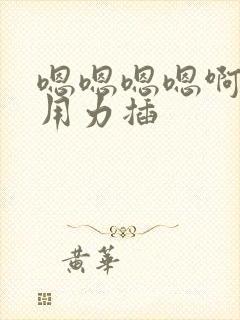 嗯嗯嗯嗯啊
用力插
黄華